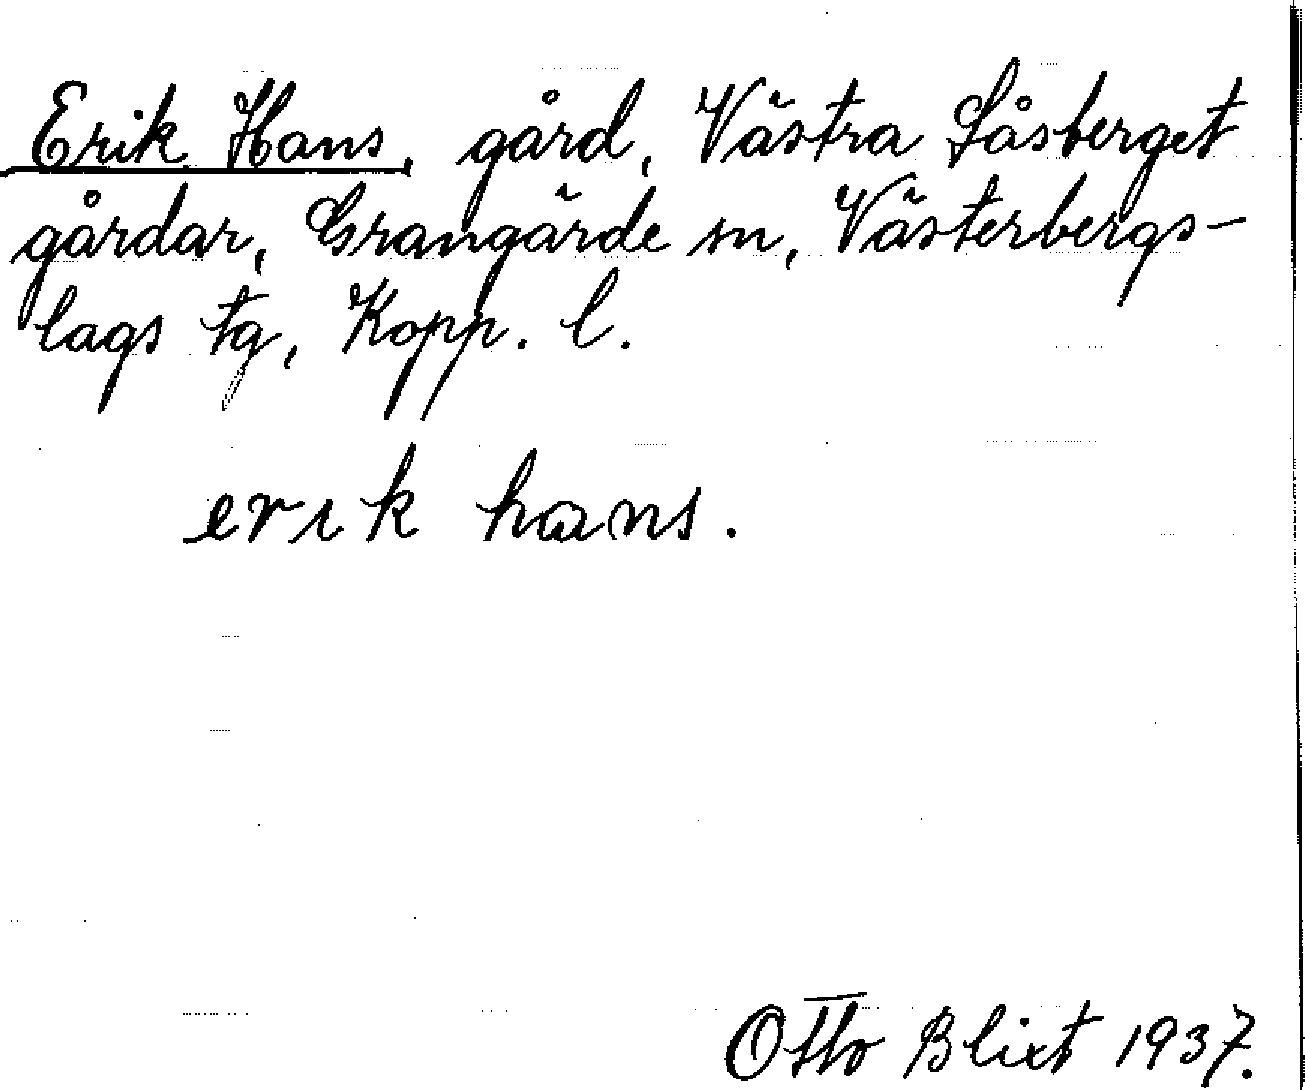 Erik Hans, gård, Västra Såsberget
gårdar, Grangärde sn, Västerbergs-
lags tg, Kopp. l.
erik hans.
Otto Blixt 1937.